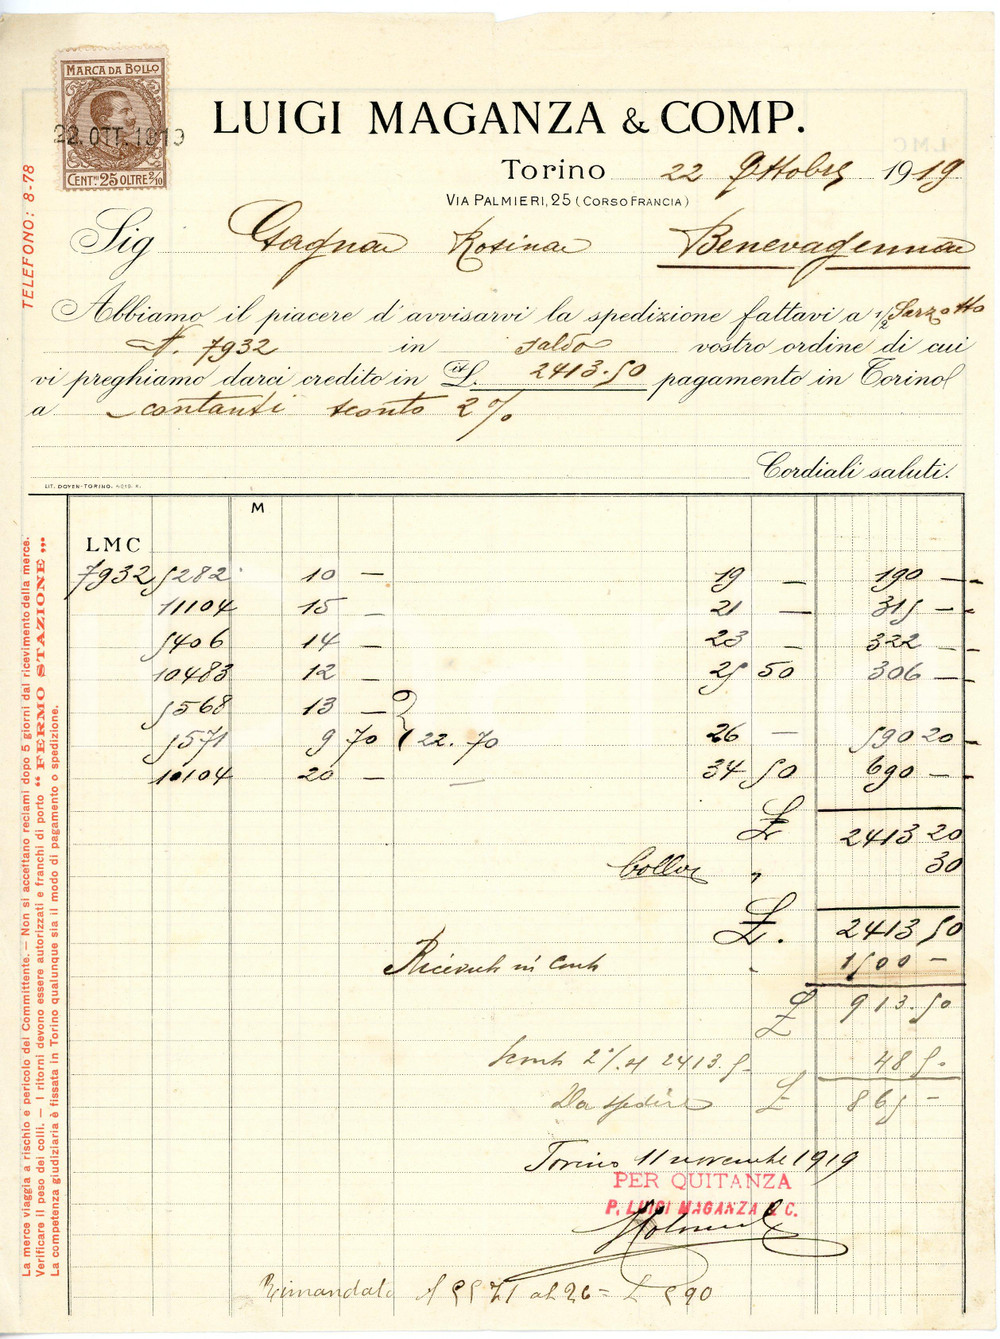 MARCA DA BOLLO
22. OTT. 1919
CENT.MI 25 OLTRE 2/10
LUIGI MAGANZA & COMP.
Torino 22 Ottobre 1919.
VIA PALMIERI, 25 (CORSO FRANCIA)
TELEFONO: 8-78
Sig Gagna Rosina Benevagenna
Abbiamo il piacere d'avvisarvi la spedizione fattavi a 1/2
N. 7932 in saldo vostro ordine di cui
vi preghiamo darci credito in £. 2413.50 pagamento in Torino
a contanti sconto 2%
Cordiali saluti.
LIT. DOYEN-TORINO.
M
LMC
7932 5282 10 — 19 — 190 —
11104 15 — 21 — 315 —
5406 14 — 23 — 322 —
10483 12 — 25 50 306 —
5568 13 —
5571 9 70 22.70 26 — 590 20 —
10104 20 — 34 50 690 —
£ 2413 20
bollo " 30
£. 2413 50
Ricevuti in conto 1500 —
£ 913.50
Sconto 2% su 2413.50 48 50
Da spedire £ 865 —
Torino 11 novembre 1919
PER QUITANZA
P. LUIGI MAGANZA & C.
Rimandato 5571 al 26 = £ 590
La merce viaggia a rischio e pericolo del Committente. — Non si accettano reclami dopo 5 giorni dal ricevimento della merce.
Verificare il peso dei colli. — I ritorni devono essere autorizzati e franchi di porto “ FERMO STAZIONE ”.
La competenza giudiziaria è fissata in Torino qualunque sia il modo di pagamento o spedizione.